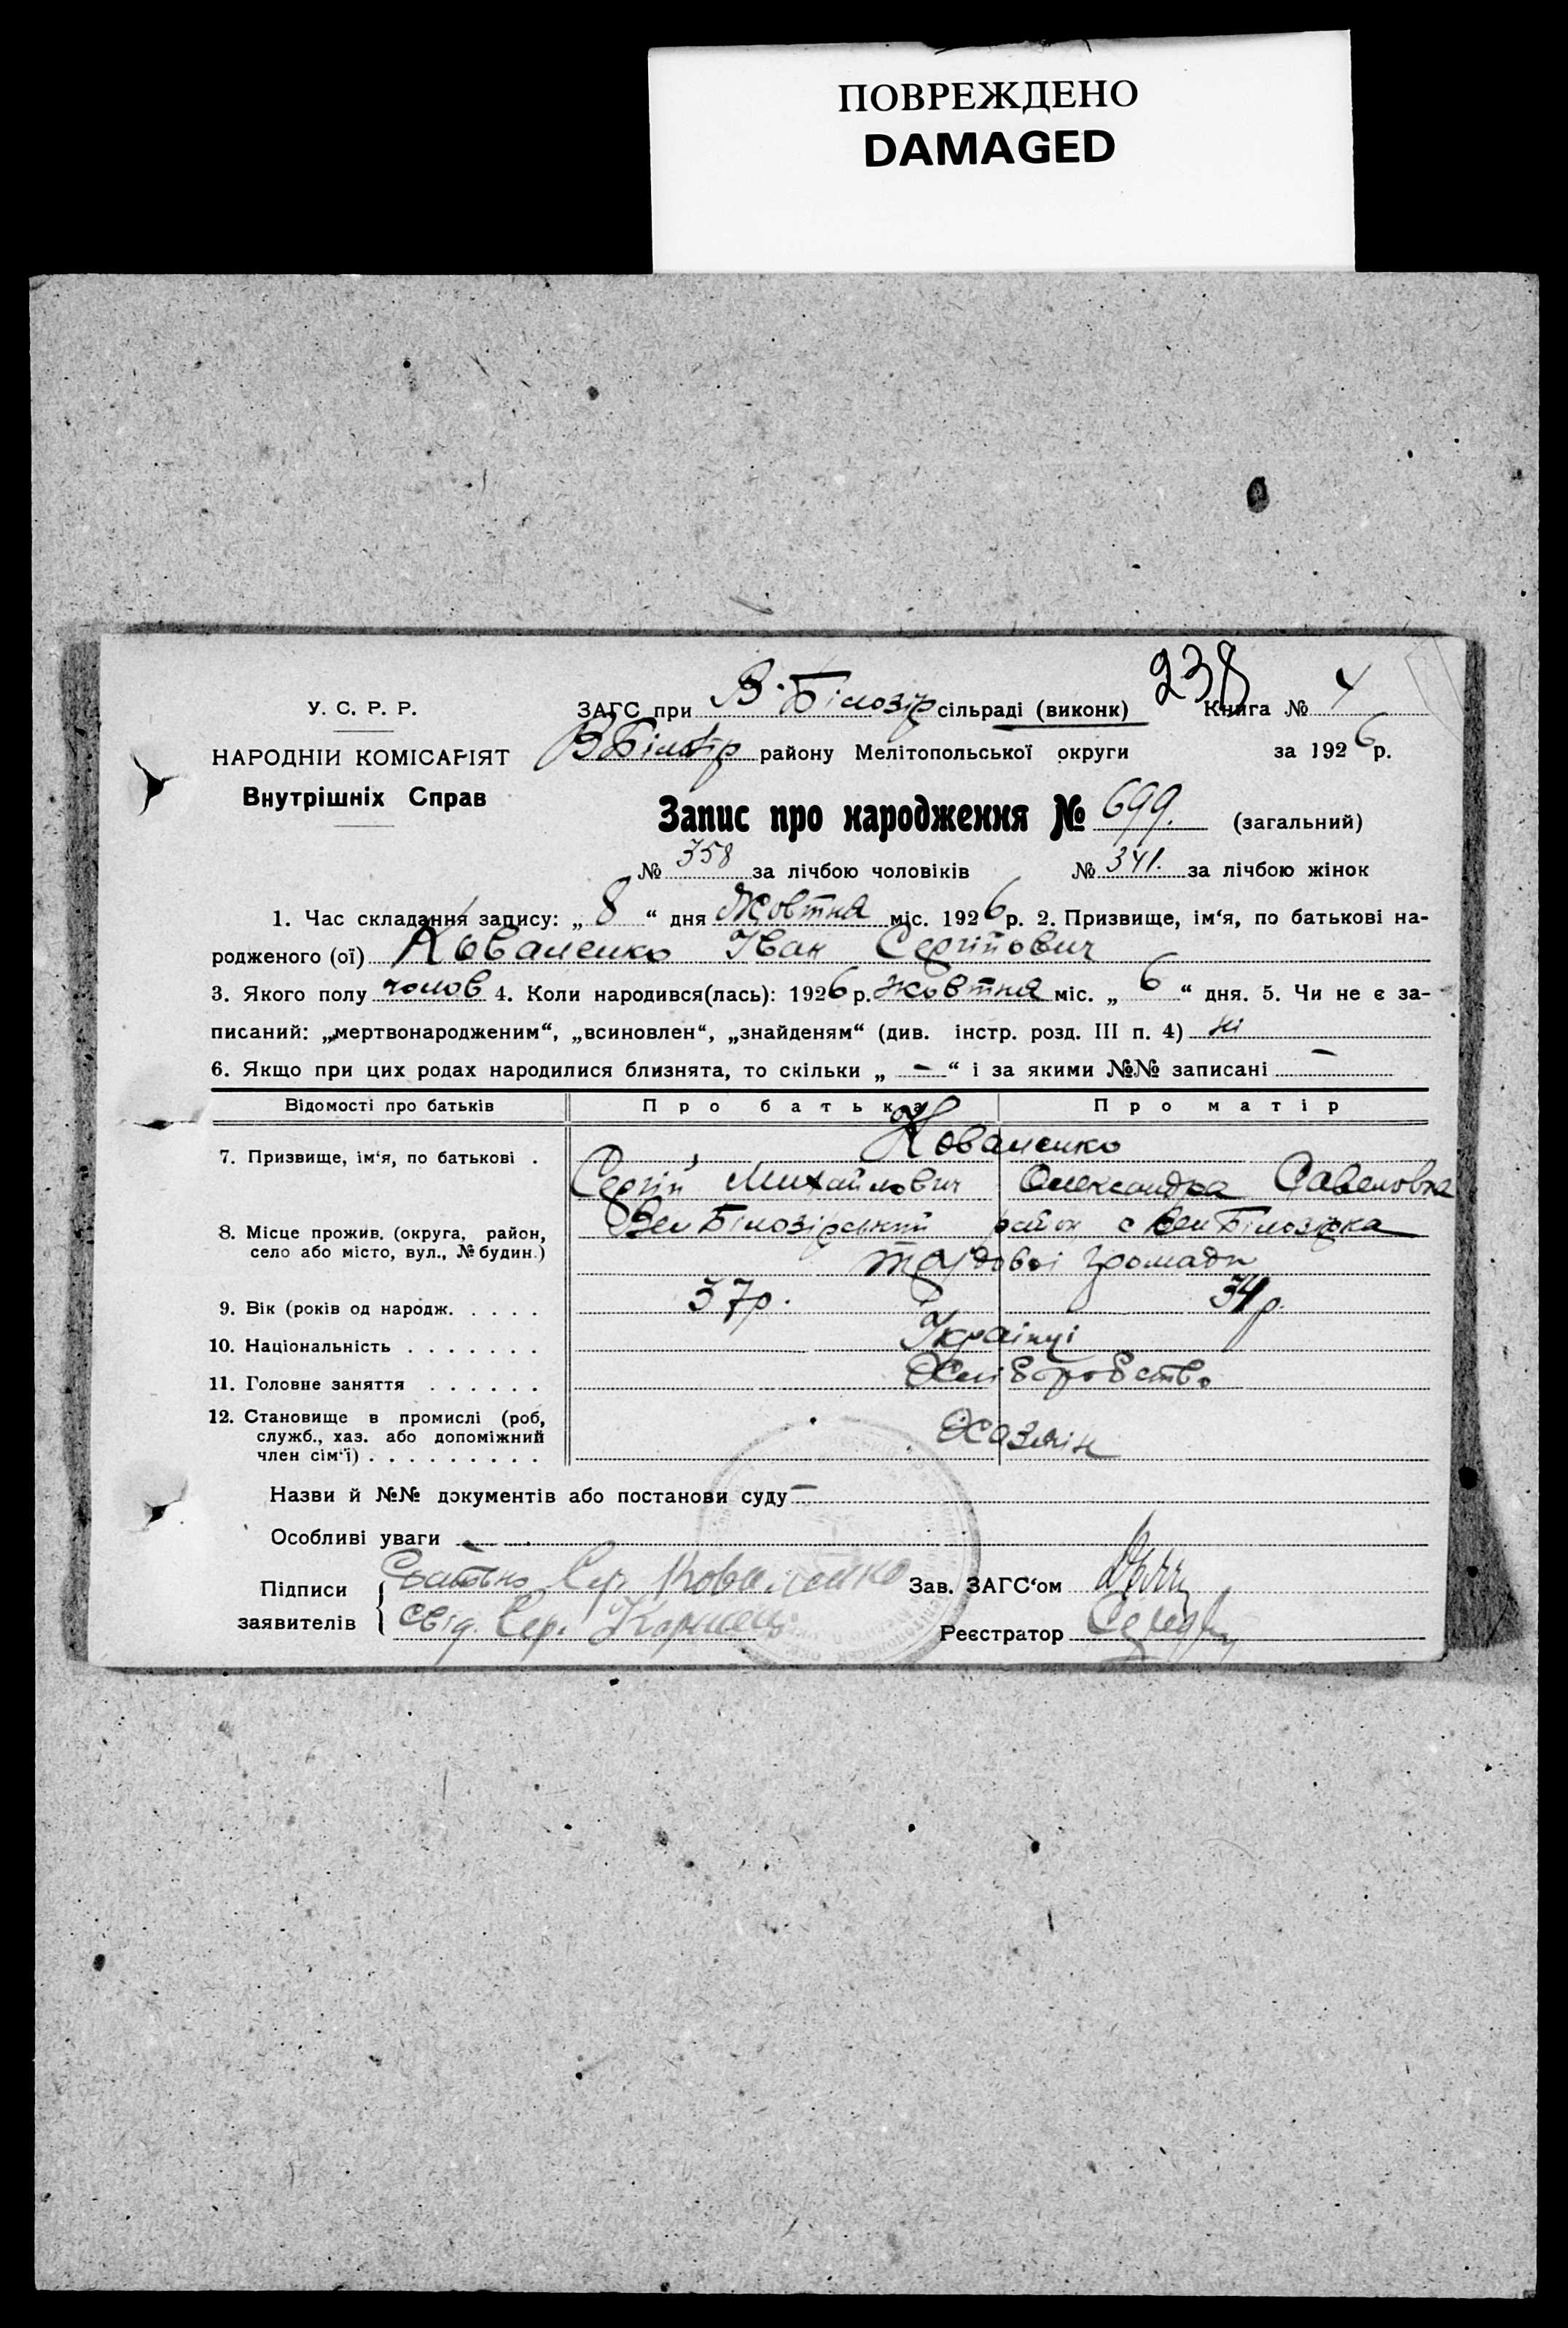 ПОВРЕЖДЕНО
DAMAGED
238
У. С. Р. Р.
НАРОДНІЙ КОМІСАРІЯТ
Внутрішніх Справ
ЗАГС при В. Білозір сільраді (виконк) Книга № 4
В Білозір району Мелітопольської округи за 1926 р.
Запис про народження № 699. (загальний)
№ 358 за лічбою чоловіків № 341. за лічбою жінок
1. Час складання запису: „ 8 “ дня Жовтня міс. 1926 р. 2. Призвище, ім‘я, по батькові на-
родженого (ої) Коваленко Іван Сергійович
3. Якого полу чолов 4. Коли народився(лась): 1926 р. жовтня міс. „ 6 “ дня. 5. Чи не є за-
писаний: „мертвонародженим“, „всиновлен“, „знайденям“ (див. інстр. розд. III п. 4) ні
6. Якщо при цих родах народилися близнята, то скільки „ - “ і за якими №№ записані -
Відомості про батьків Про батька Про матір
7. Призвище, ім‘я, по батькові . Коваленко
Сергій Михайлович Олександра Савеловна
8. Місце прожив. (округа, район,
село або місто, вул., № будин.)
Вел Білозірський район с Вел Білозірка
трудової громади
9. Вік (років од народж. . . . . 37р. 34р.
10. Національність . . . . . . . Українці
11. Головне заняття . . . . . . Хліборобство
12. Становище в промислі (роб,
служб., хаз. або допоміжний
член сім‘ї) . . . . . . . . . Хозяїн
Назви й №№ документів або постанови суду -
Особливі уваги -
Підписи
заявителів
Батько Сер. Коваленко
Свід. Сер.
Зав. ЗАГС‘ом
Реєстратор